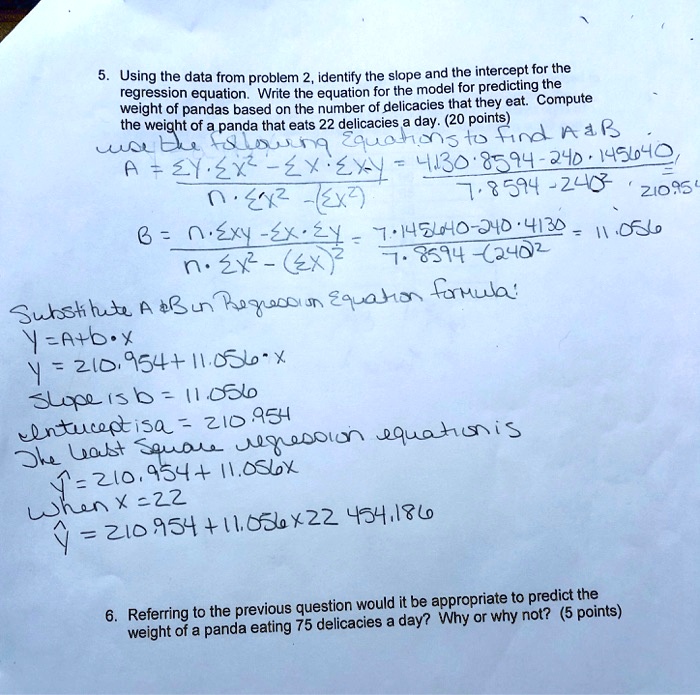 5. Using the data from problem 2, identify the slope and the intercept for the
regression equation. Write the equation for the model for predicting the
weight of pandas based on the number of delicacies that they eat. Compute
the weight of a panda that eats 22 delicacies a day. (20 points)
use the following Equations to find A & B
A = ΣY·ΣX² - ΣX·ΣXY / n·ΣX² - (ΣX²) = 4130·8594-240·145640 / 7·8594-240² , 210.954
B = n·Σxy - Σx·Σy / n·Σx² - (Σx)² = 7·145640-240·4130 / 7·8594-(240)² = 11.056
Substitute A & B in Regression Equation formula:
Y = A+b·x
y = 210.954 + 11.056·x
Slope is b = 11.056
intercept is a = 210.954
The least Square regression equation is
ŷ = 210.954 + 11.056x
When x = 22
ŷ = 210.954 + 11.056x22 454.186
6. Referring to the previous question would it be appropriate to predict the
weight of a panda eating 75 delicacies a day? Why or why not? (5 points)